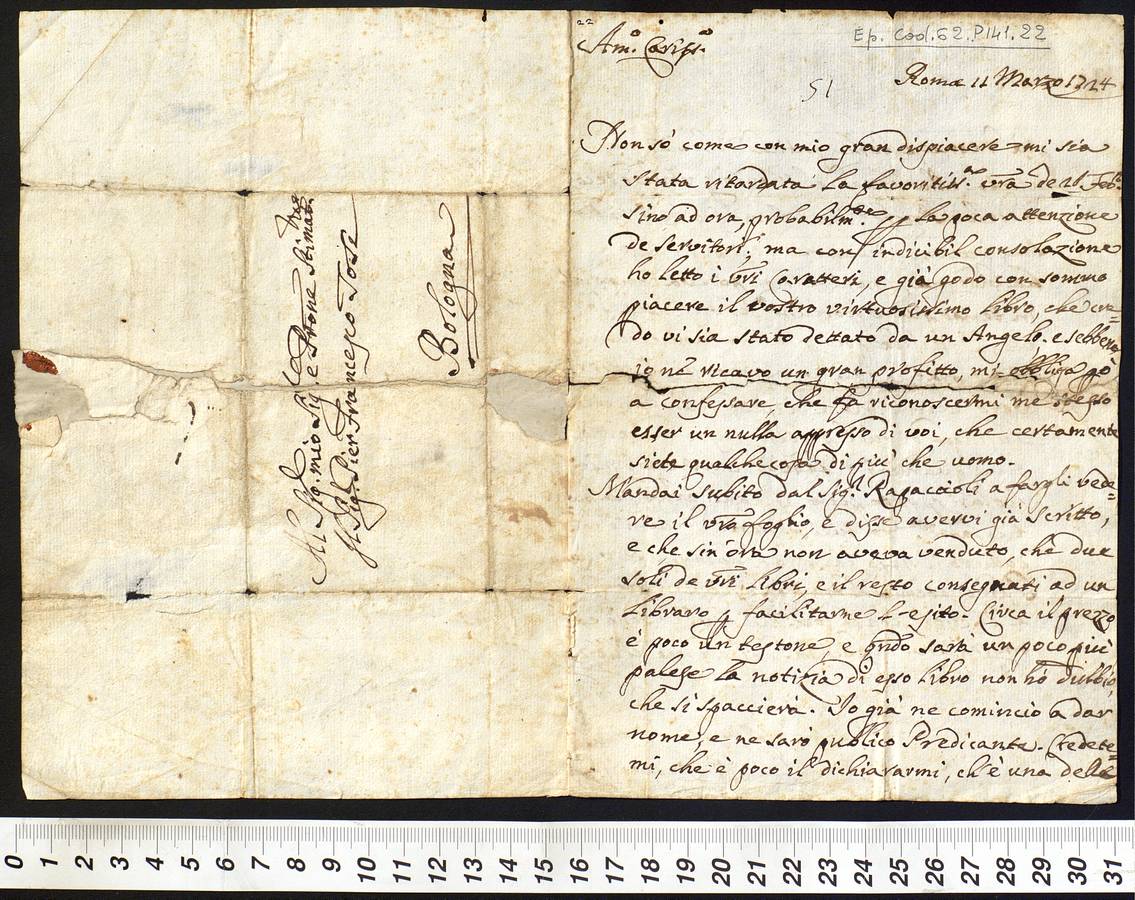 Al Sig.r mio Sig.re e Prone Stimat.
Il Sig. Pier Francesco Tosi
Bologna
22
Ep. Cod. 62. P141. 22
Am.o Cariss.o
51
Roma 11 Marzo 1724
Non sò come con mio gran dispiacere mi sia
stata ritardata la favoritiss.a vrã de 21 Feb.
sino ad ora, probabilm.te p la poca attenzione
de servitori; ma con indicibil consolazione
ho letto i vrĩ Caratteri, e già godo con sommo
piacere il vostro virtuosissimo libro, che cre=
do vi sia stato dettato da un Angelo. e sebbene
io ne ricavo un gran profitto, mi obbliga pò
a confessare, che fa riconoscermi me stesso
esser un nulla appresso di voi, che certamente
siete qualche cosa di più che uomo.
Mandai subito dal Sig.r Rapaccioli a fargli vede=
re il vrõ foglio, e disse avervi già scritto,
e che sin'ora non aveva venduto, che due
soli de vrĩ libri, e il resto consegnati ad un
libraro p facilitarne l'esito. Circa il prezzo
è poco un testone, e qndo sarà un poco più
palese la notizia di esso libro non hò dubbio,
che si spaccierà. Io già ne comincio a dar
nome, e ne sarò publico Predicante. Credete=
mi, che è poco il dichiararmi, ch'è una delle
0 1 2 3 4 5 6 7 8 9 10 11 12 13 14 15 16 17 18 19 20 21 22 23 24 25 26 27 28 29 30 31